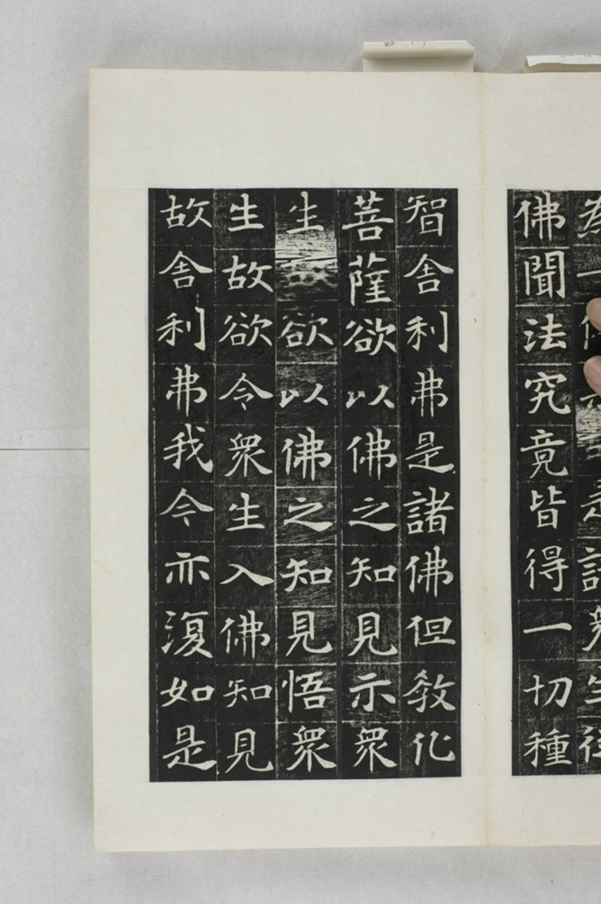 為一是諸衆生從
佛聞法究竟皆得一切種
智舍利弗是諸佛但教化
菩薩欲以佛之知見示衆
生欲以佛之知見悟衆
生故欲令衆生入佛知見
故舍利弗我今亦復如是